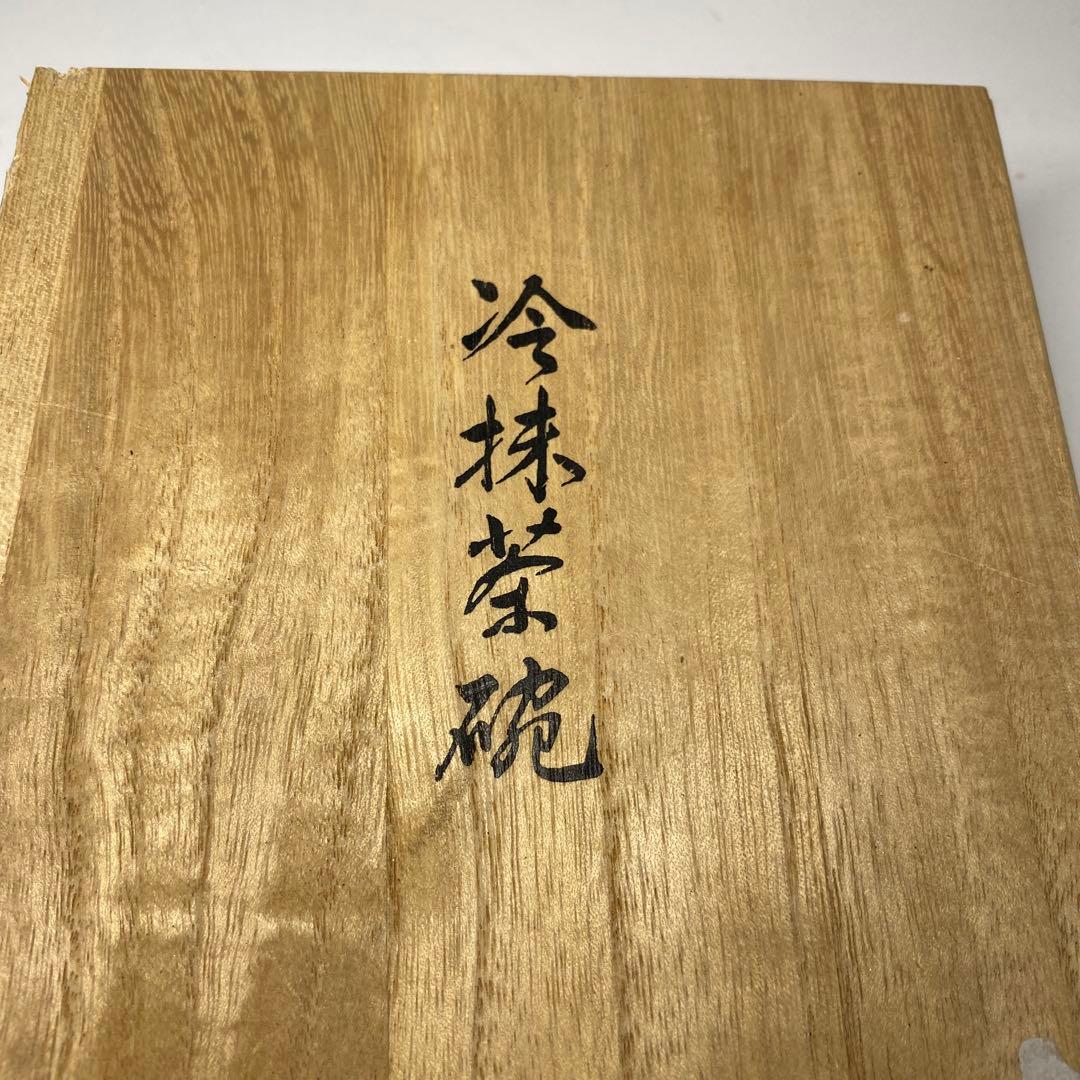 冷抹茶碗